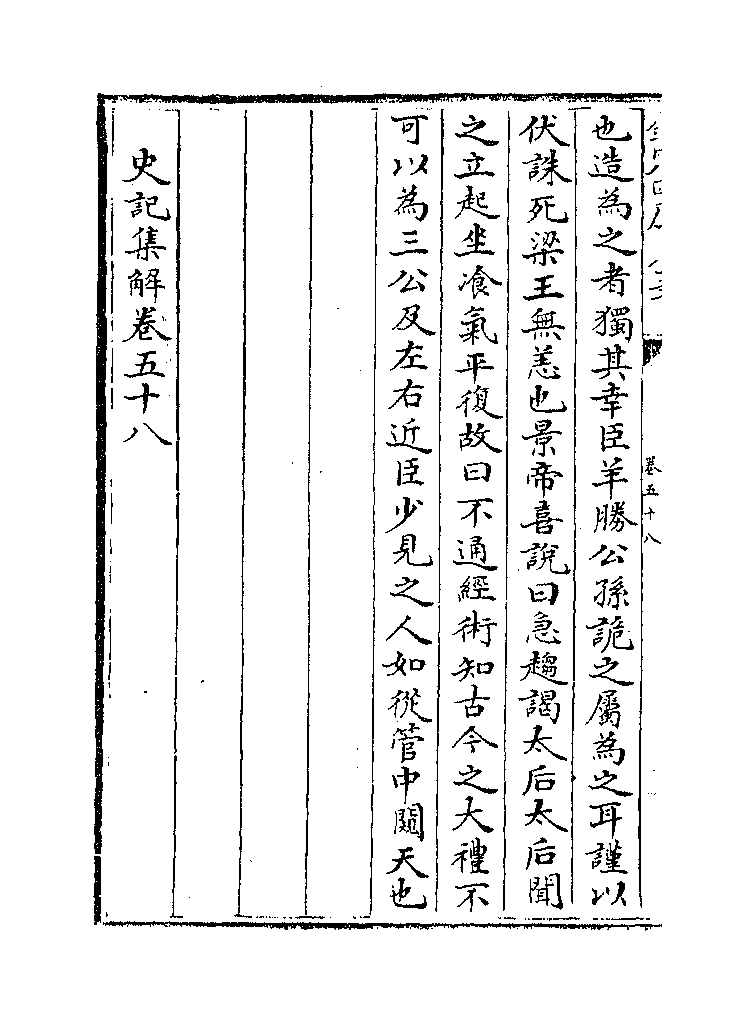 也造為之者獨其幸臣羊勝公孫詭之屬為之耳謹以
伏誅死梁王無恙也景帝喜說曰急趨謁太后太后聞
之立起坐飡氣平復故曰不通經術知古今之大禮不
可以為三公及左右近臣少見之人如從管中闚天也
史記集解卷五十八
卷五十八